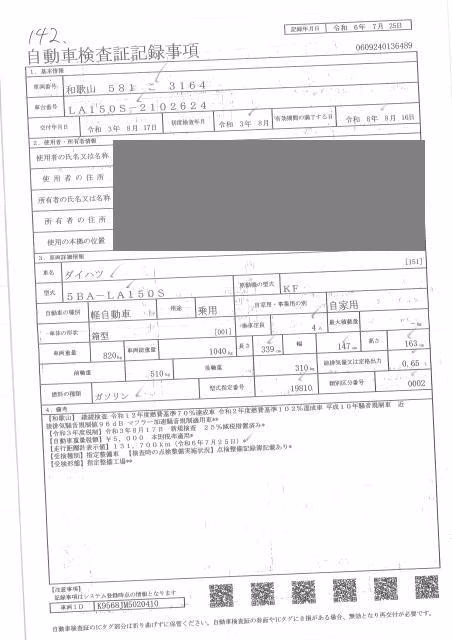 142.
記録年月日 令和 6年 7月 25日
自動車検査証記録事項
0609240136489
1. 基本情報
車両番号 和歌山 581 こ 3164
車台番号 LA150S-2102624
交付年月日 令和 3年 8月 17日 初度検査年月 令和 3年 8月 有効期間の満了する日 令和 8年 8月 16日
2. 使用者・所有者情報
使用者の氏名又は名称
使用者の住所
所有者の氏名又は名称
所有者の住所
使用の本拠の位置
3. 車両詳細情報
車名 ダイハツ [151]
型式 5BA-LA150S 原動機の型式 KF
自動車の種別 軽自動車 用途 乗用 自家用・事業用の別 自家用
車体の形状 箱型 [001] 乗車定員 4人 最大積載量 -kg
車両重量 820kg 車両総重量 1040kg 長さ 339cm 幅 147cm 高さ 163cm
前軸重 510kg 後軸重 310kg 総排気量又は定格出力 0.65
燃料の種類 ガソリン 型式指定番号 19810 類別区分番号 0002
4. 備考
【和歌山】 継続検査 令和12年度燃費基準70%達成車 令和2年度燃費基準102%達成車 平成10年騒音規制車 近
接排気騒音規制値96dB マフラー加速騒音規制適用車**
【令和3年度税制】令和3年8月17日 新規検査 25%減税措置済み*
【自動車重量税額】¥5,000 本則税率適用*
【走行距離計表示値】131,700km（令和6年7月25日）
【受検種別】指定整備車 【検査時の点検整備実施状況】点検整備記録簿記載あり*
【受検形態】指定整備工場**
【注意事項】
記録事項はシステム登録時点の情報となります
車両ID K9568JM5020410
自動車検査証のICタグ部分は折り曲げずに保管ください。自動車検査証の券面やICタグにき損がある場合、無効となり再交付が必要です。